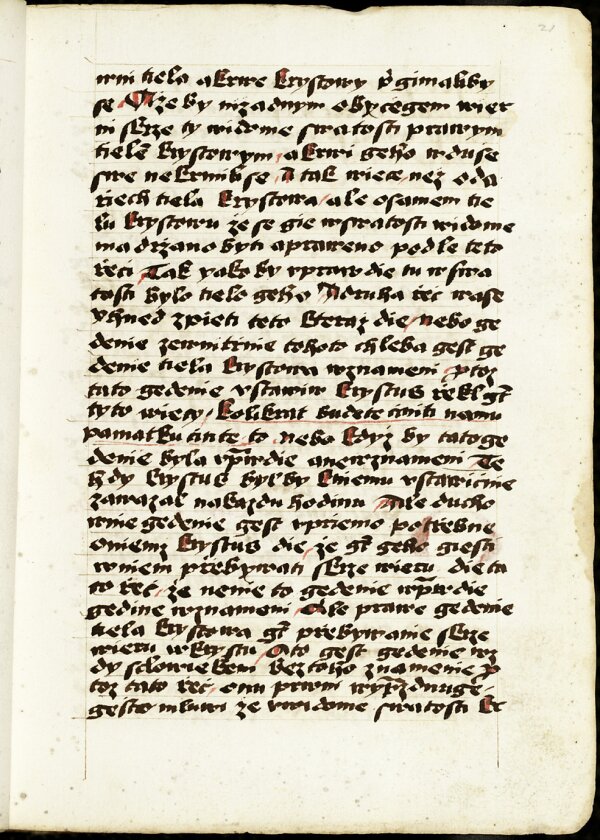 21
wni tiela a krwe krystowy przigimaliby
se Ti ze by nizadnym obycegem wier
ni skrze ty widome swatosti prawym
tielem krystowym a krwi geho w duse
swe nekrmibse A tak wiece nez o da
riech tiela krystowa ale o samem tie
lu krystowu ze se gie w swatosti widome
ma drzano byti a praweno podle teto
reci Tak yako by vprawdie tu w swa
tosti bylo tielo geho A druha rec wase
vhned zpieti teto kteraz die nebo ge
denie zewnitrnie tohoto chleba gest ge
denie tiela krystowa wznameni protoz
tato gedenie vstawiw krystus rekl gt
tyto wiecy kolikrat budete ciniti na mu
pamatku cinte to nebo kdyz by tato ge
denie byla vprawdie a ne w znameni Te
hdy krystus byl by k niemu vstawicnie
zawazal na kazdu hodinu Ale ducho
wnie gedenie gest vprziemo potrebne
o niemz krystus die ze gt geho giesti
w niem prebywati skrze wieru die ta
to rec ze nenie to gedenie wprawdie
gedine w znameni Ale prawe gedenie
tiela krystowa gt prebywanie skrze
wieru w krystu A to gest gedenie wz
dy sclowiekem bez toho znamenie pro
toz tato rec onu prwni wyprazdniuge
gesto mluwi ze v widome swatosti kr